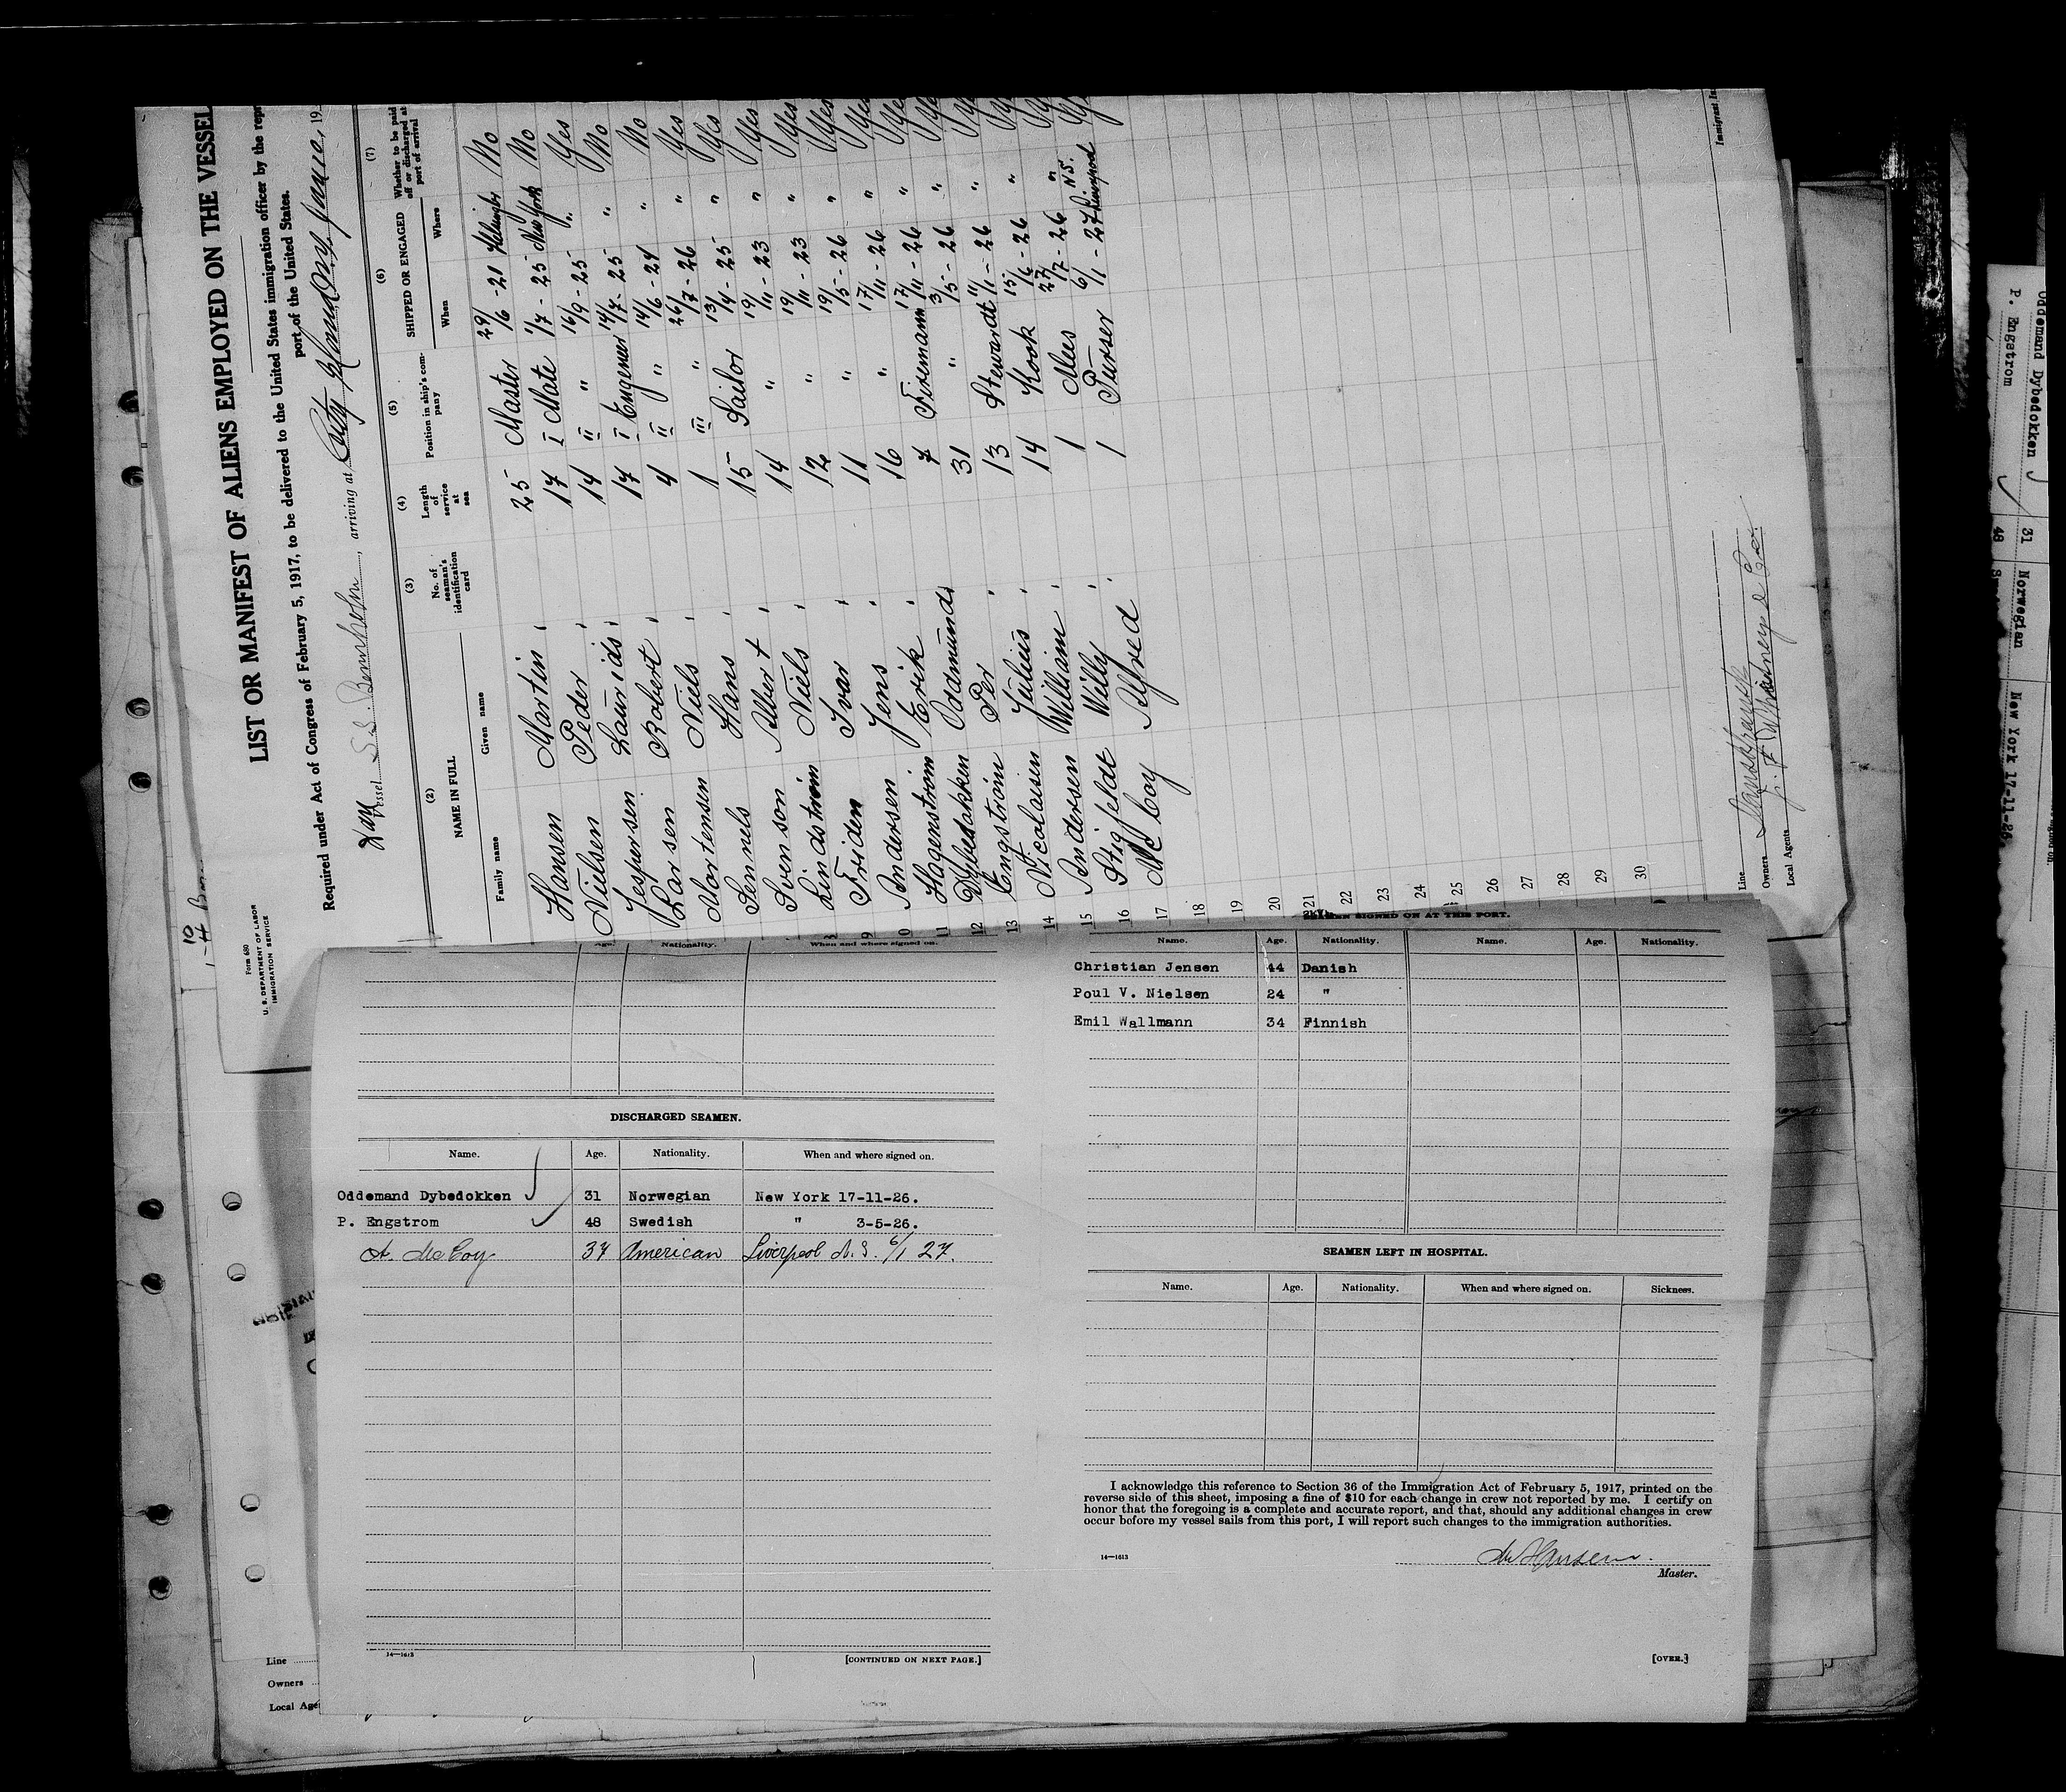 LIST OR MANIFEST OF ALIENS EMPLOYED ON THE VESSEL
Required under Act of Congress of February 5, 1917, to be delivered to the United States immigration officer by the repr
port of the United States.
Vessel S.S. arriving at 19
Form 680
U. S. DEPARTMENT OF LABOR
IMMIGRATION SERVICE
(2) (3) (4) (5) (6) (7)
NAME IN FULL
Family name Given name
No. of seaman's identification card
Length of service at sea
Position in ship's company
SHIPPED OR ENGAGED
When Where
Whether to be paid off or discharged at port of arrival
Hansen Martin 25 Master 29/6 - 21 No
Nielsen Peder 17 I Mate 1/7 - 25 New York No
Jespersen Laurids 14 II " 16/9 - 25 " Yes
Larsen Robert 17 I Engeneer 14/7 - 25 " No
Mortensen Niels 4 II " 14/6 - 24 " No
Sennels Hans 1 III " 26/7 - 26 " Yes
Svenson Albert 15 Sailor 13/4 - 25 " Yes
Lindström Niels 14 " 19/11 - 23 " Yes
Friden Ivar 12 " 19/11 - 23 " Yes
10 Andersen Jens 11 " 19/5 - 26 " Yes
11 Hagenström Erik 16 " 17/11 - 26 " Yes
12 Dybedokken Oddmund 7 Firemann 17/11 - 26 " Yes
13 Engström Per 31 " 3/5 - 26 "
14 Nicolaisen Julius 13 Stewardt 11/1 - 26 "
15 Andersen William 14 Kook 15/6 - 26 "
16 Stigfeldt Willy 1 Mes 27/7 - 26 "
17 McCoy Alfred 1 Purser 6/1 - 27 Liverpool N.S.
18
19
20
21
22
23
24
25
26
27
28
29
30
Line
Owners
Local Agents J. F. Whitney & Co.
Immigrant In
Age. Nationality. When and where signed on.
DISCHARGED SEAMEN.
Name. Age. Nationality. When and where signed on.
Oddemand Dybedokken 31 Norwegian New York 17-11-26.
P. Engstrom 48 Swedish " 3-5-26.
A. McCoy 37 American Liverpool N.S. 6/1 27.
14—1613 [CONTINUED ON NEXT PAGE.]
SEAMEN SIGNED ON AT THIS PORT.
Name. Age. Nationality. Name. Age. Nationality.
Christian Jensen 44 Danish
Poul V. Nielsen 24 "
Emil Wallmann 34 Finnish
SEAMEN LEFT IN HOSPITAL.
Name. Age. Nationality. When and where signed on. Sickness.
I acknowledge this reference to Section 36 of the Immigration Act of February 5, 1917, printed on the
reverse side of this sheet, imposing a fine of $10 for each change in crew not reported by me. I certify on
honor that the foregoing is a complete and accurate report, and that, should any additional changes in crew
occur before my vessel sails from this port, I will report such changes to the immigration authorities.
14—1613
M Hansen.
Master.
[OVER.]
Line
Owners
Local Age
Oddemand Dybedokken 31 Norwegian New York 17-11-26.
P. Engstrom 48 S